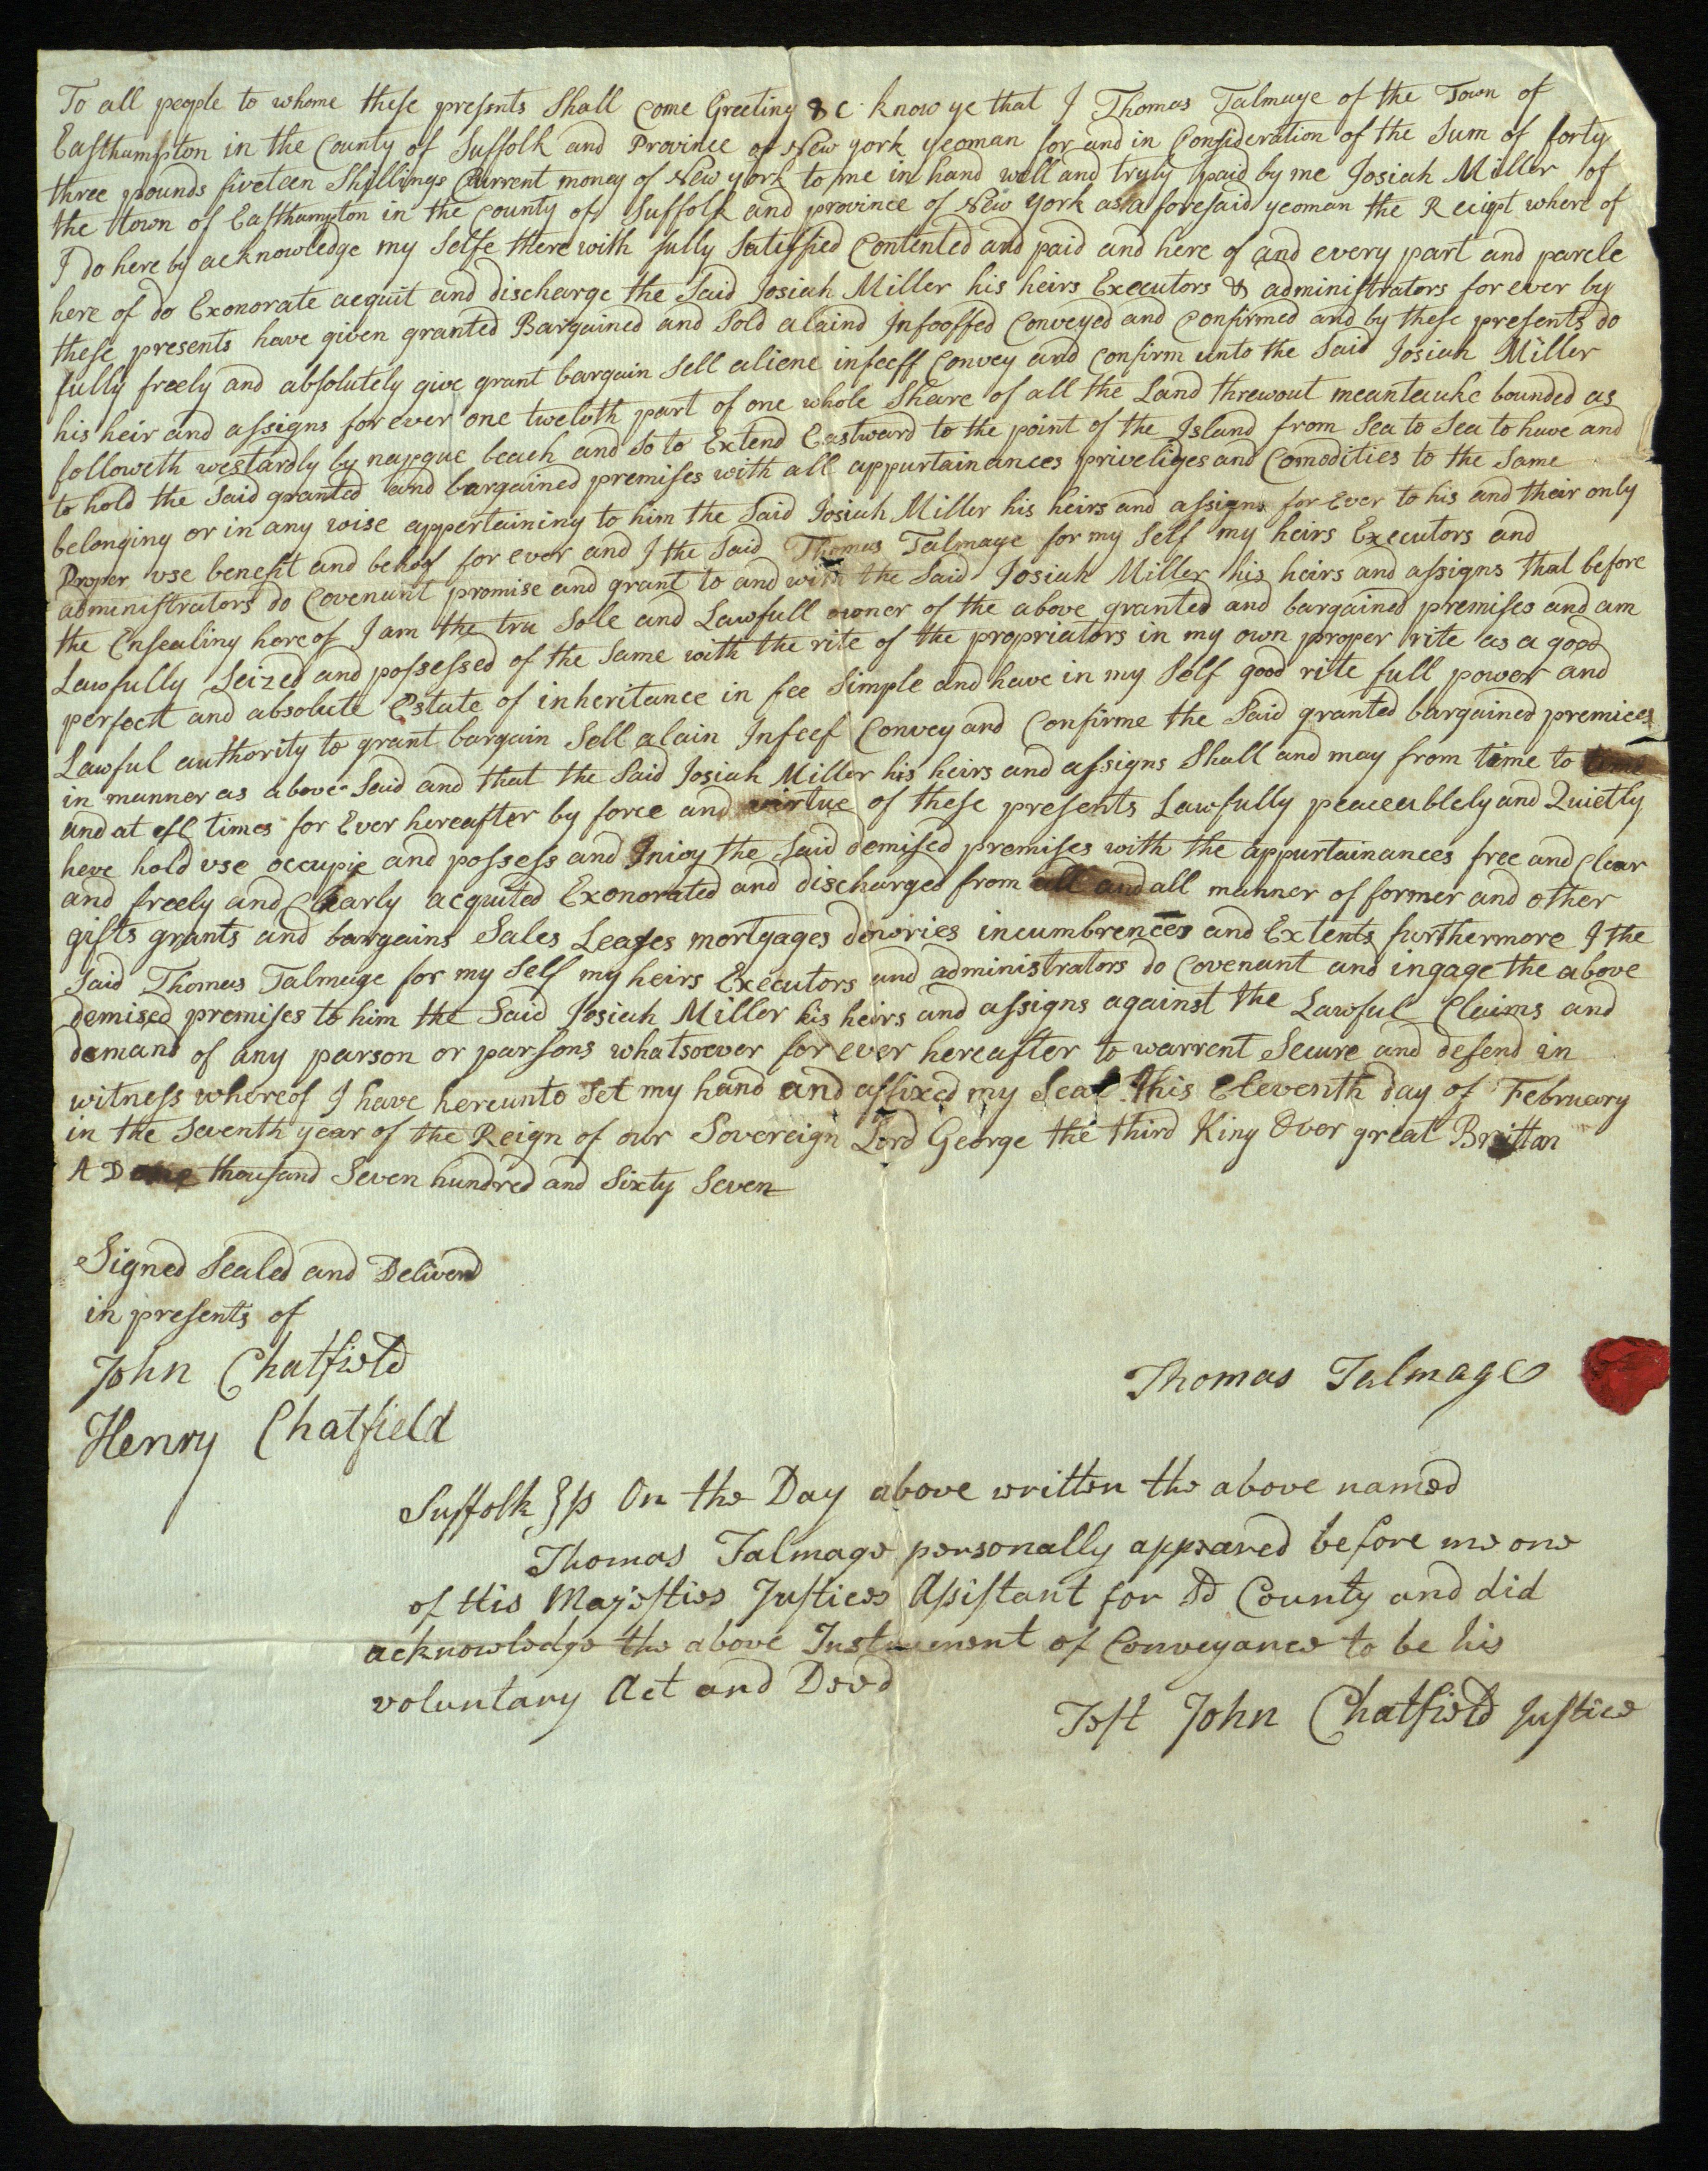 To all people to whome these presents Shall Come Greeting &c know ye that I Thomas Talmage of the Town of
Easthampton in the County of Suffolk and Province of New york yeoman for and in Consideration of the Sum of forty
three pounds fiveteen Shillings Current money of New york to me in hand well and truly paid by me Josiah Miller of
the town of Easthampton in the County of Suffolk and province of New York as aforesaid yeoman the Reciept where of
I do here by acknowledge my Selfe there with fully Satisfied Contented and paid and here of and every part and parcle
here of do Exonorate acquit and discharge the Said Josiah Miller his heirs Executors & administrators for ever by
these presents have given granted Bargained and Sold alaind Infeoffed Conveyed and Confirmed and by these presents do
fully freely and absolutely give grant bargain Sell aliene infeeff Convey and Confirm unto the Said Josiah Miller
his heir and assigns for ever one twelvth part of one whole Share of all the Land threwout meantauke bounded as
followeth westardly by nappque beach and So to Extend Eastward to the point of the Island from Sea to Sea to have and
to hold the Said granted and bargained premises with all appurtainances priveliges and Comodities to the Same
belonging or in any wise appertaining to him the Said Josiah Miller his heirs and assigns for Ever to his and their only
Proper use benefit and behof for ever and I the Said Thomas Talmage for my Self my heirs Executors and
administrators do Covenant promise and grant to and with the Said Josiah Miller his heirs and assigns that before
the Ensealing hereof I am the tru Sole and Lawfull owner of the above granted and bargained premises and am
Lawfully Seized and possessed of the Same with the rite of the propriators in my own proper rite as a good
perfect and absolute Estate of inheritance in fee Simple and have in my Self good rite full power and
Lawful authority to grant bargain Sell alain Infeef Convey and Confirme the Said granted bargained premices
in manner as above Said and that the Said Josiah Miller his heirs and assigns Shall and may from time to time
and at all times for Ever hereafter by force and virtue of these presents Lawfully peaceablely and Quietly
have hold use occupie and possess and Injoy the Said demised premises with the appurtainances free and Clear
and freely and Clearly acquited Exonorated and discharged from all and all manner of former and other
gifts grants and bargains Sales Leases mortgages dowries incumbrences and Extents furthermore I the
Said Thomas Talmage for my Self my heirs Executors and administrators do Covenant and ingage the above
demised premises to him the Said Josiah Miller his heirs and assigns against the Lawful Claims and
demand of any parson or parsons whatsoever for ever hereafter to warrent Secure and defend in
witness whereof I have hereunto Set my hand and affixed my Seal this Eleventh day of February
in the Seventh year of the Reign of our Sovereign Lord George the third King Over great Brittan
A D one thousand Seven hundred and Sixty Seven
Signed Sealed and Deliverd
in presents of
John Chatfield
Henry Chatfield
Thomas Talmage
Suffolk } ss On the Day above written the above named
Thomas Talmage personally appeared before me one
of His Majesties Justices Assistant for sd County and did
acknowledge the above Instrument of Conveyance to be his
voluntary Act and Deed
Test John Chatfield Justice